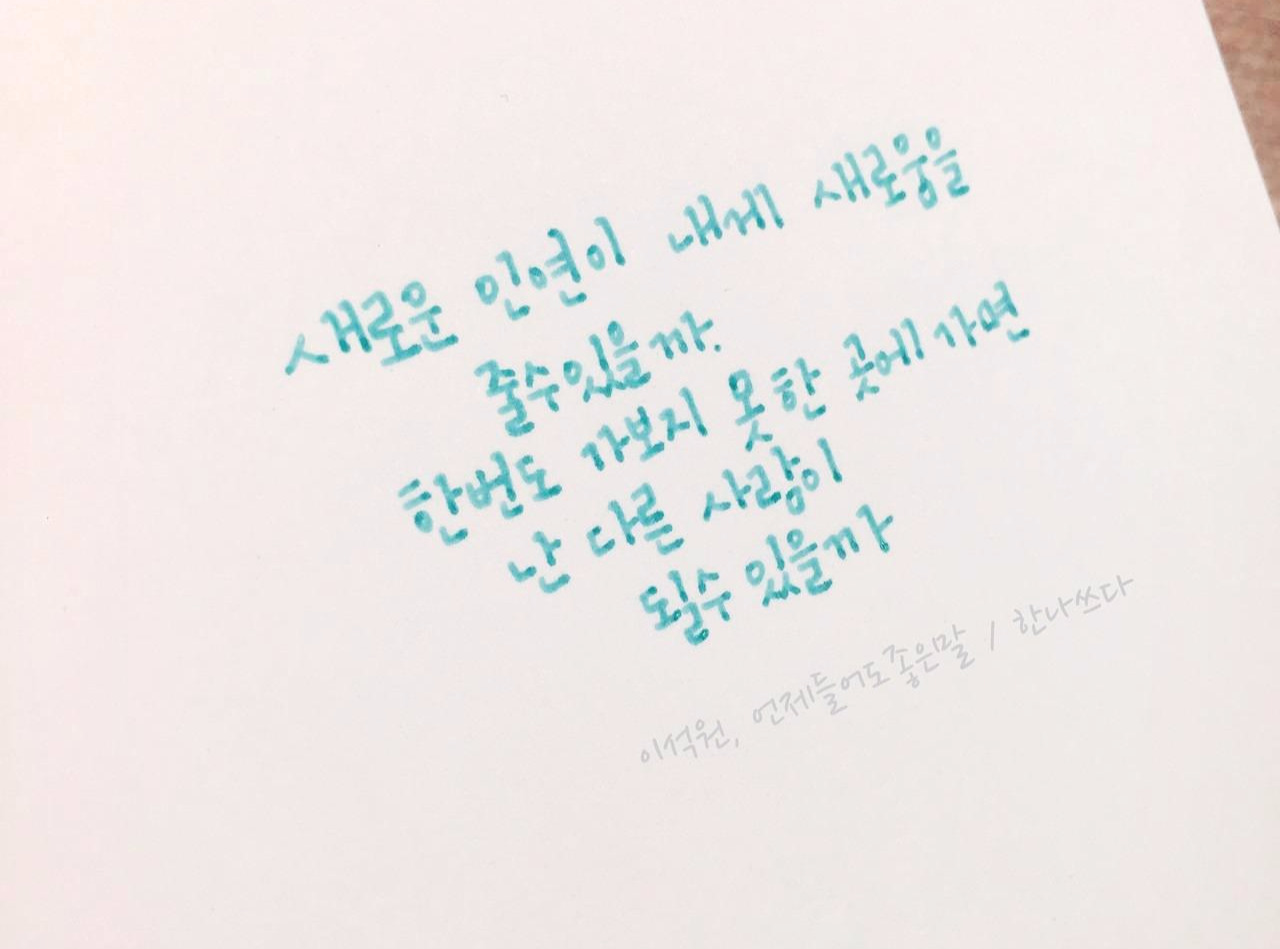 새로운 인연이 내게 새로움을
줄수있을까.
한번도 가보지 못한 곳에가면
난 다른 사람이
될수 있을까
이석원, 언제들어도좋은말 / 한나쓰다